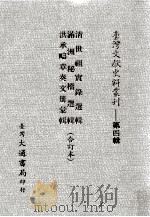 臺灣文獻史料叢刊——第四輯
清世祖實錄選輯
滿洲秘檔選輯
洪承疇章奏文冊彙輯
(合訂本)
臺灣大通書局印行